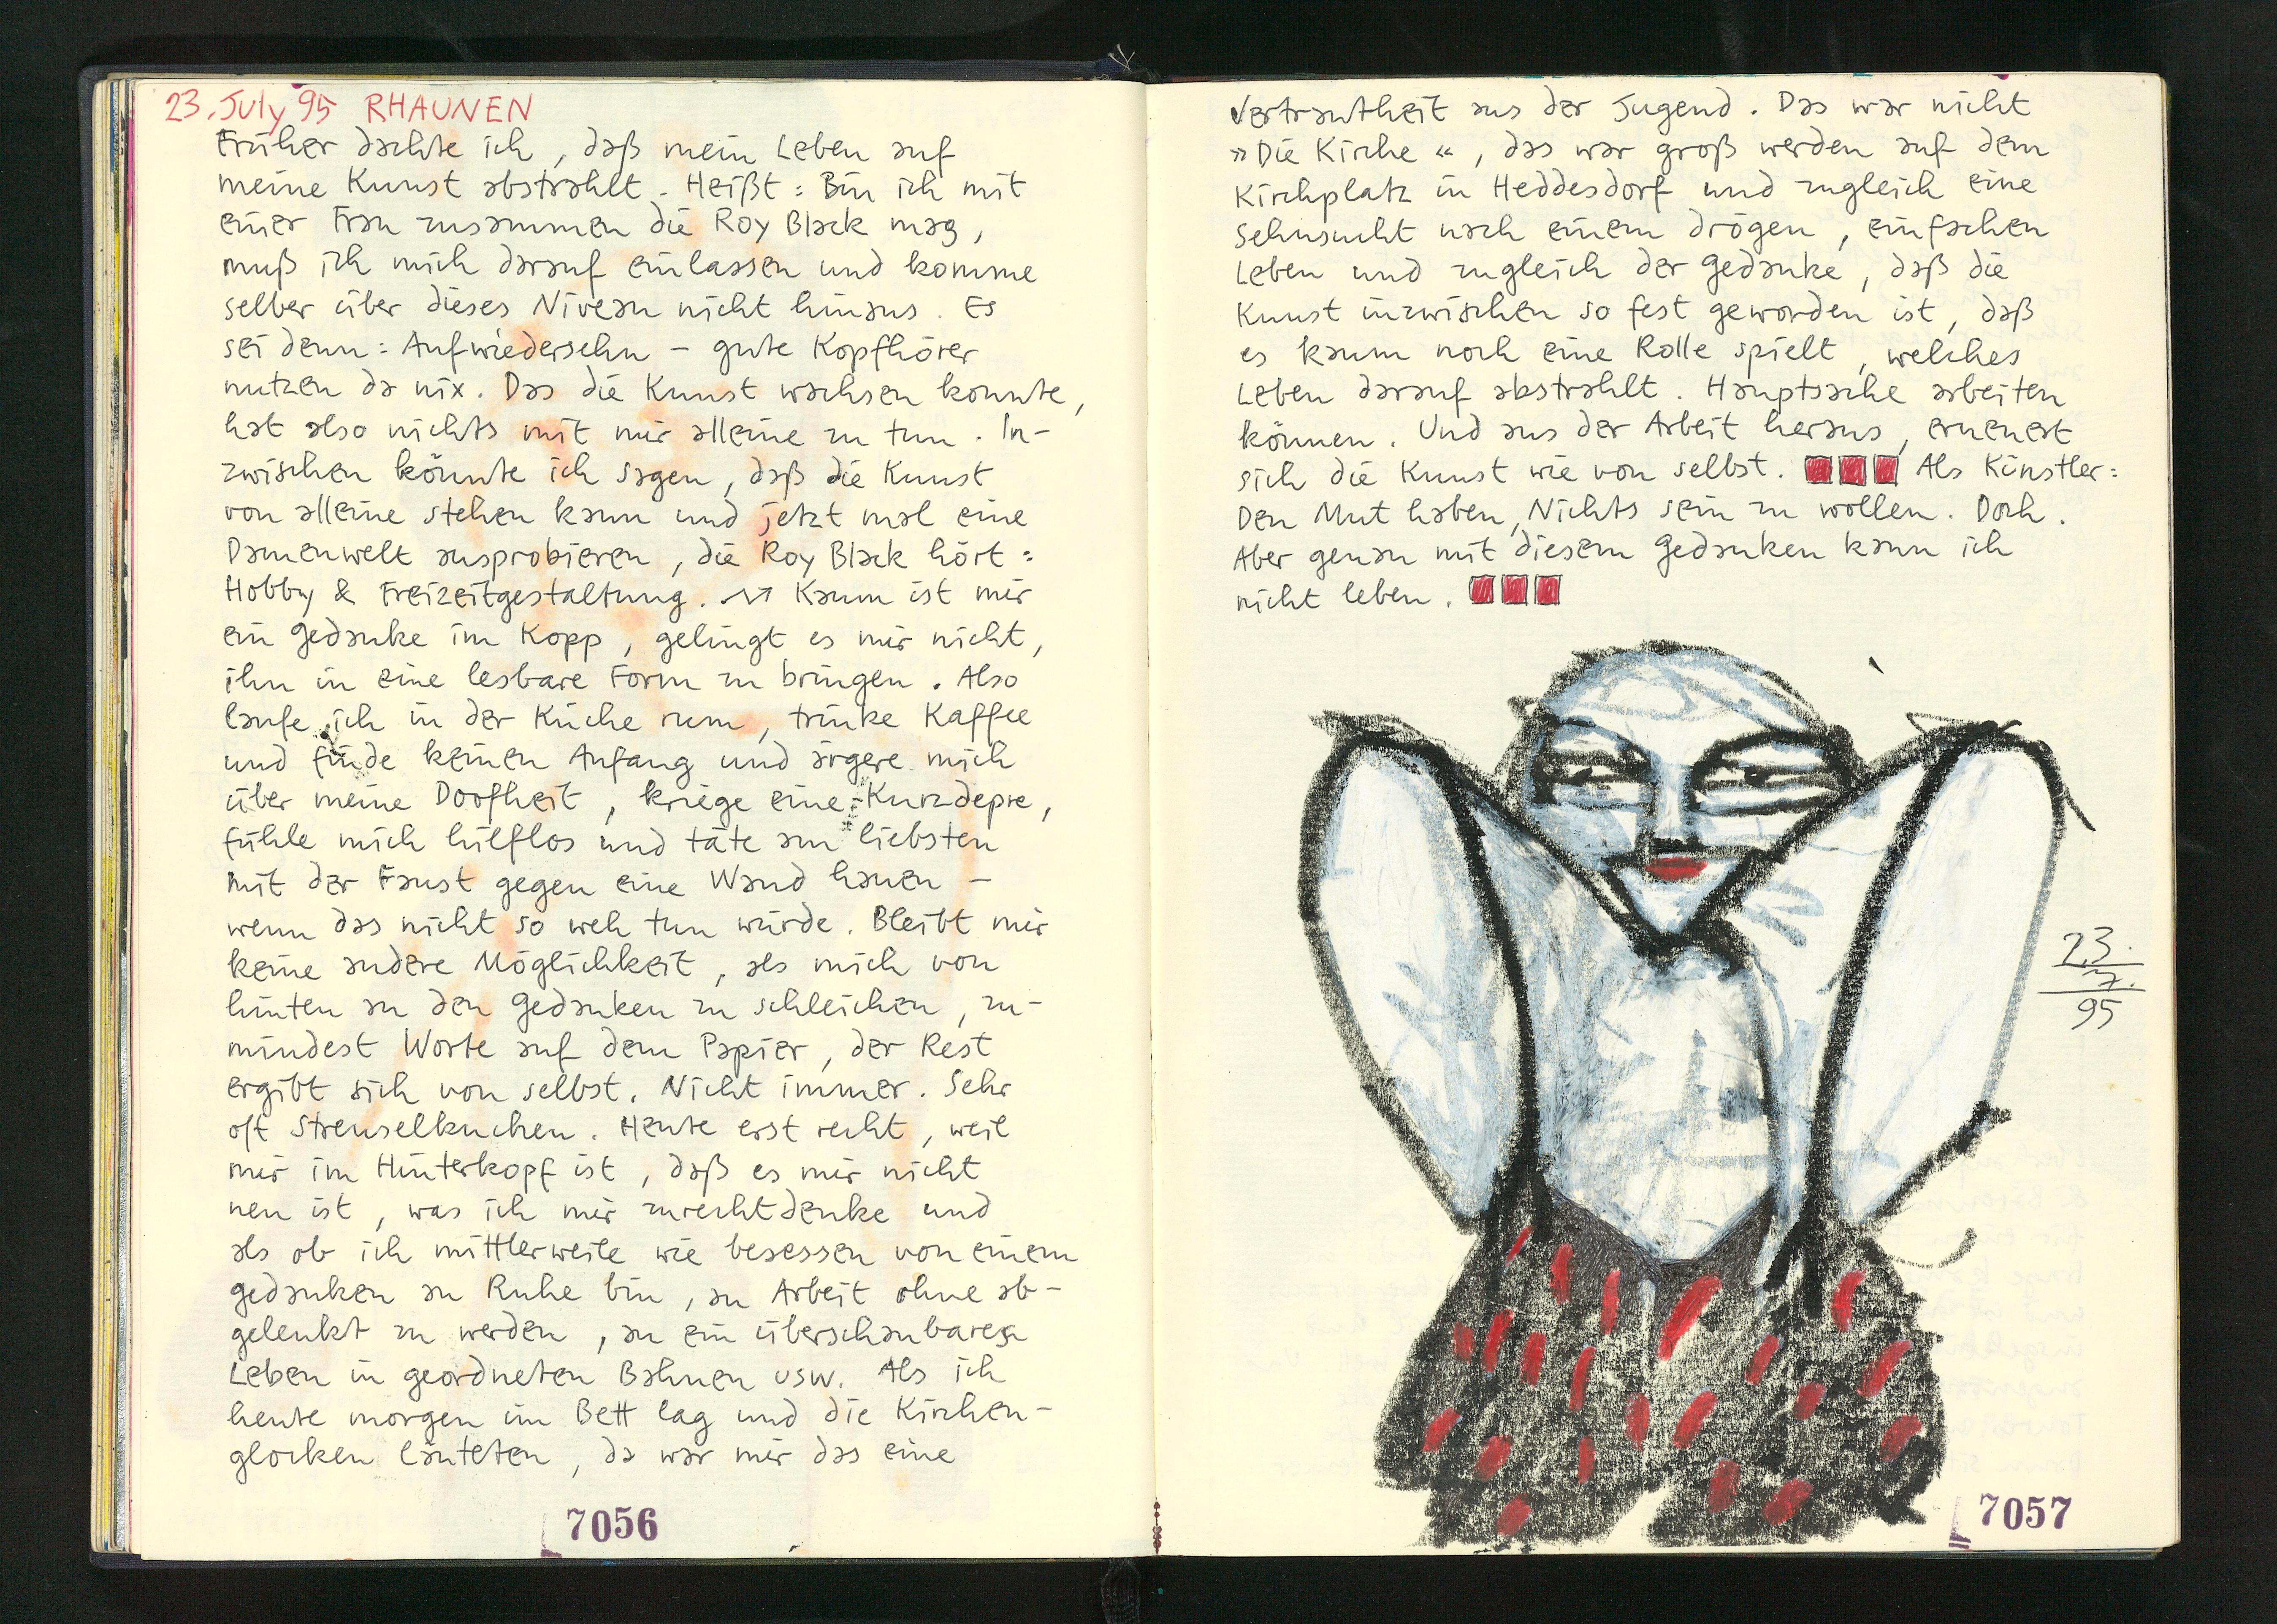 23. July 95 RHAUNEN
Früher dachte ich, daß mein Leben auf
meine Kunst abstrahlt. Heißt: Bin ich mit
einer Frau zusammen die Roy Black mag,
muß ich mich darauf einlassen und komme
selber über dieses Niveau nicht hinaus. Es
sei denn: Aufwiedersehn – gute Kopfhörer
nutzen da nix. Das die Kunst wachsen konnte,
hat also nichts mit mir alleine zu tun. In-
zwischen könnte ich sagen, daß die Kunst
von alleine stehen kann und jetzt mal eine
Damenwelt ausprobieren, die Roy Black hört:
Hobby & Freizeitgestaltung. Kaum ist mir
ein Gedanke im Kopp, gelingt es mir nicht,
ihn in eine lesbare Form zu bringen. Also
laufe ich in der Küche rum, trinke Kaffee
und finde keinen Anfang und ärgere mich
über meine Doofheit, kriege eine Kurzdepre,
fühle mich hilflos und täte am liebsten
mit der Faust gegen eine Wand hauen –
wenn das nicht so weh tun würde. Bleibt mir
keine andere Möglichkeit, als mich von
hinten an den Gedanken zu schleichen, zu-
mindest Worte auf dem Papier, der Rest
ergibt sich von selbst. Nicht immer. Sehr
oft Streuselkuchen. Heute erst recht, weil
mir im Hinterkopf ist, daß es mir nicht
neu ist, was ich mir zurechtdenke und
als ob ich mittlerweile wie besessen von einem
Gedanken an Ruhe bin, an Arbeit ohne ab-
gelenkt zu werden, an ein überschaubares
Leben in geordneten Bahnen usw. Als ich
heute morgen im Bett lag und die Kirchen-
glocken läuteten, da war mir das eine
7056
Vertrautheit aus der Jugend. Das war nicht
»Die Kirche«, das war groß werden auf dem
Kirchplatz in Heddesdorf und zugleich eine
Sehnsucht nach einem drögen, einfachen
Leben und zugleich der Gedanke, daß die
Kunst inzwischen so fest geworden ist, daß
es kaum noch eine Rolle spielt, welches
Leben darauf abstrahlt. Hauptsache arbeiten
können. Und aus der Arbeit heraus, erneuert
sich die Kunst wie von selbst. Als Künstler:
Den Mut haben, Nichts sein zu wollen. Doch.
Aber genau mit diesem Gedanken kann ich
nicht leben.
23.
7.
95
7057